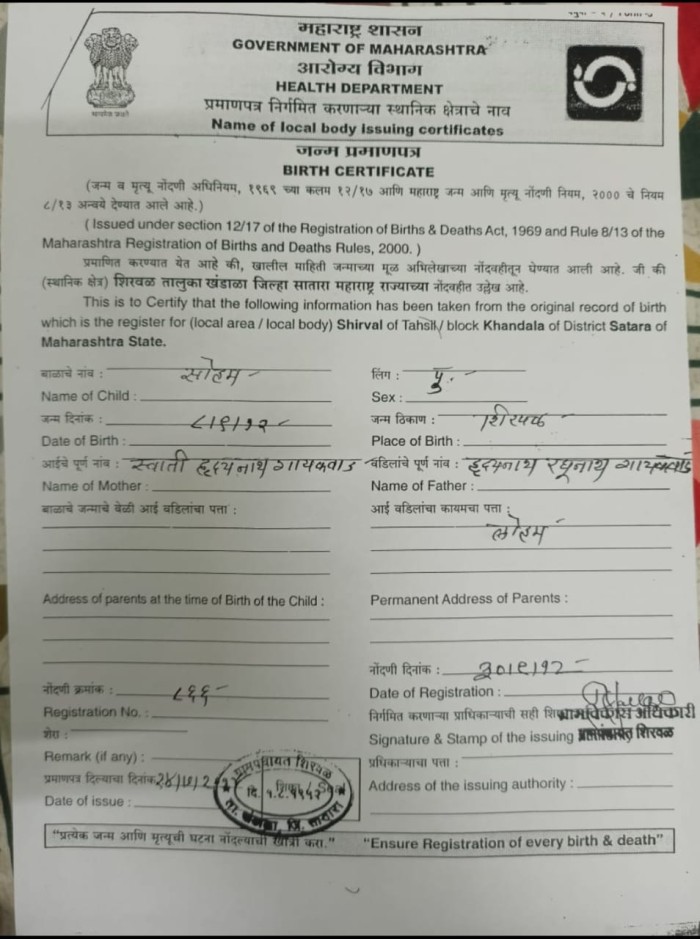 महाराष्ट्र शासन
GOVERNMENT OF MAHARASHTRA
आरोग्य विभाग
HEALTH DEPARTMENT
प्रमाणपत्र निर्गमित करणाऱ्या स्थानिक क्षेत्राचे नाव
Name of local body issuing certificates
जन्म प्रमाणपत्र
BIRTH CERTIFICATE
(जन्म व मृत्यू नोंदणी अधिनियम, १९६९ च्या कलम १२/१७ आणि महाराष्ट्र जन्म आणि मृत्यू नोंदणी नियम, २००० चे नियम
८/१३ अन्वये देण्यात आले आहे.)
( Issued under section 12/17 of the Registration of Births & Deaths Act, 1969 and Rule 8/13 of the
Maharashtra Registration of Births and Deaths Rules, 2000. )
प्रमाणित करण्यात येत आहे की, खालील माहिती जन्माच्या मूळ अभिलेखाच्या नोंदवहीतून घेण्यात आली आहे. जी की
(स्थानिक क्षेत्र) शिरवळ तालुका खंडाळा जिल्हा सातारा महाराष्ट्र राज्याच्या नोंदवहीत उल्लेख आहे.
This is to Certify that the following information has been taken from the original record of birth
which is the register for (local area / local body) Shirval of Tahsil / block Khandala of District Satara of
Maharashtra State.
बाळाचे नांव : सोहम - लिंग : पु. -
Name of Child : Sex :
जन्म दिनांक : ८।९।१२ - जन्म ठिकाण : शिरवळ
Date of Birth : Place of Birth :
आईचे पूर्ण नांव : स्वाती हृदयनाथ गायकवाड वडिलांचे पूर्ण नांव : हृदयनाथ रघुनाथ गायकवाड
Name of Mother : Name of Father :
बाळाचे जन्माचे वेळी आई वडिलांचा पत्ता : आई वडिलांचा कायमचा पत्ता :
लोहम
Address of parents at the time of Birth of the Child : Permanent Address of Parents :
नोंदणी दिनांक : २०।९।१२ -
नोंदणी क्रमांक : ८६६ - Date of Registration :
Registration No. : निर्गमित करणाऱ्या प्राधिकाऱ्याची सही ग्रामविकास अधिकारी
शेरा : Signature & Stamp of the issuing ग्रामपंचायत शिरवळ
Remark (if any) : प्रधिकाऱ्याचा पत्ता :
प्रमाणपत्र दिल्याचा दिनांक Address of the issuing authority :
Date of issue :
ग्रामपंचायत शिरवळ
ता. खंडाळा, जि. सातारा
"प्रत्येक जन्म आणि मृत्यूची घटना नोंदल्याची खात्री करा." "Ensure Registration of every birth & death"